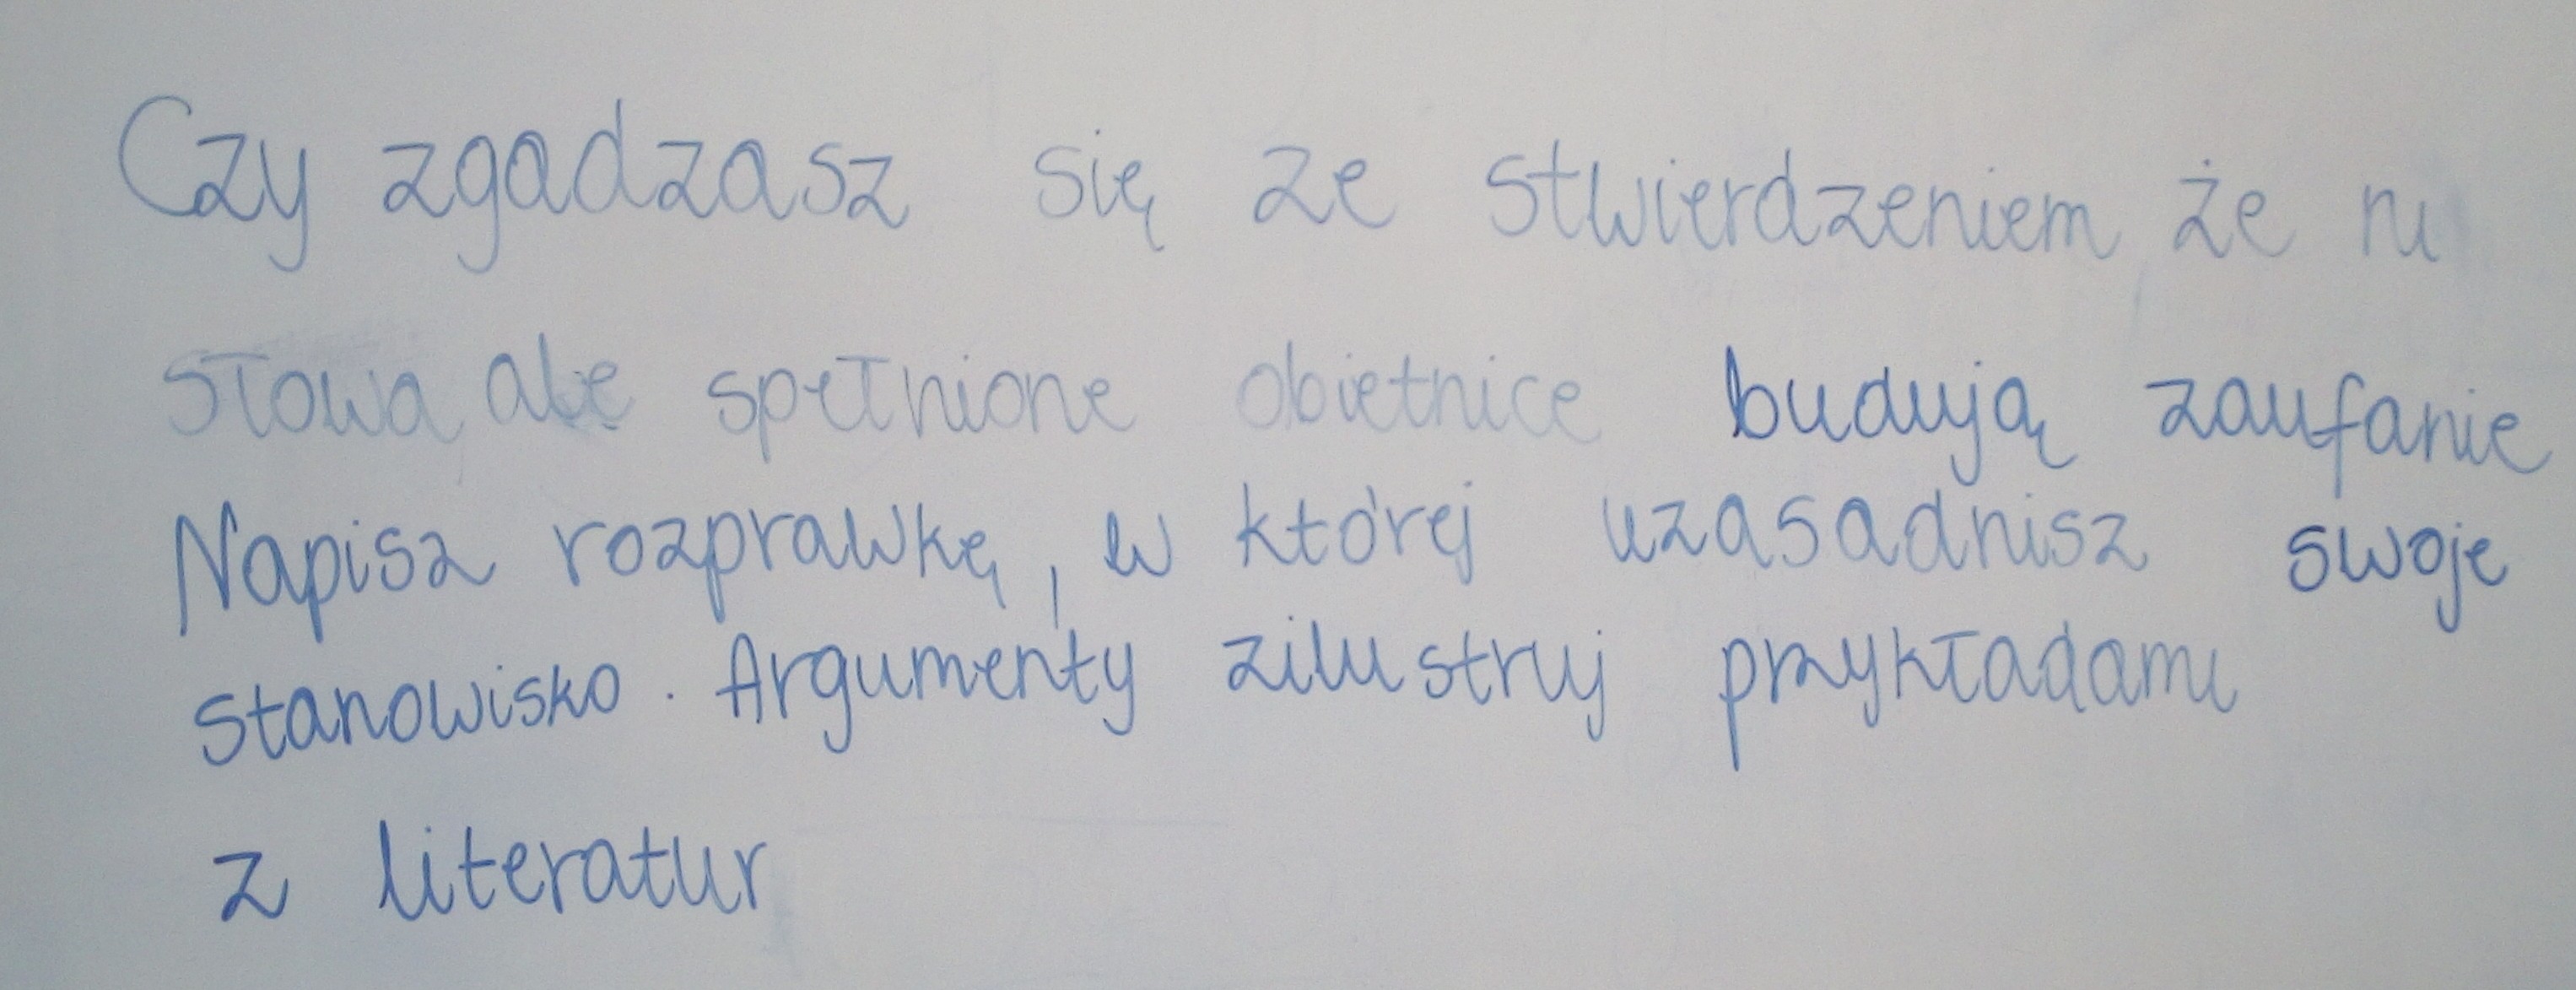 Czy zgadzasz się ze stwierdzeniem że ni
słowa, ale spełnione obietnice budują zaufanie
Napisz rozprawkę, w której uzasadnisz swoje
stanowisko. Argumenty zilustruj przykładami
z literatur